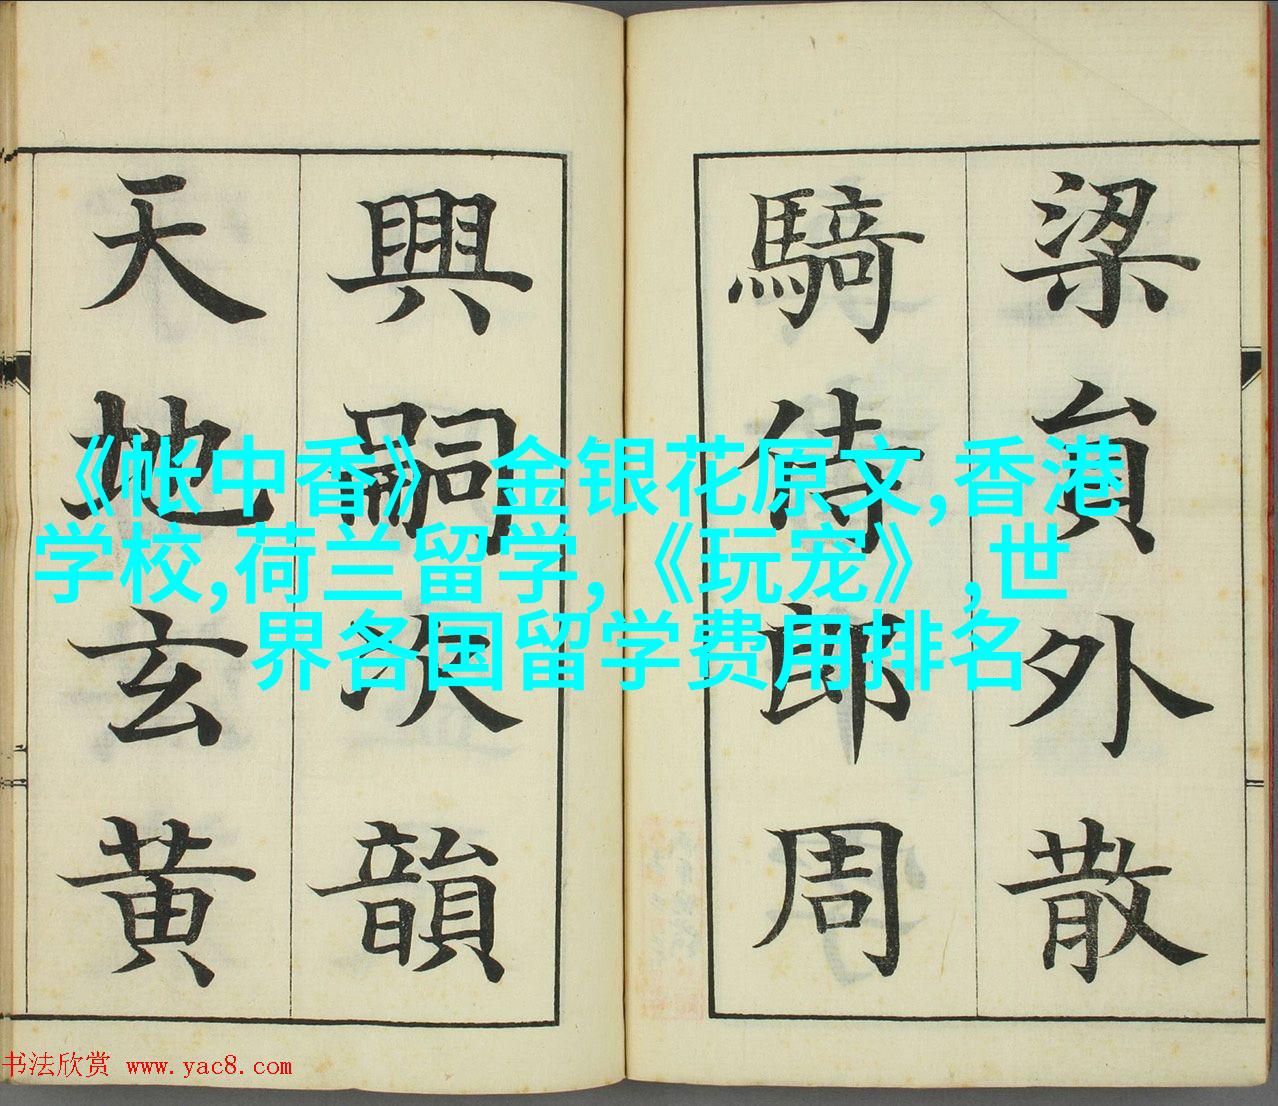 梁員外散
騎侍郎周
興嗣次韻
天地玄黄
《帐中香》 金银花原文,香港
学校,荷兰留学,《玩宠》,世
界各国留学费用排名
书法欣赏 www.yac8.com